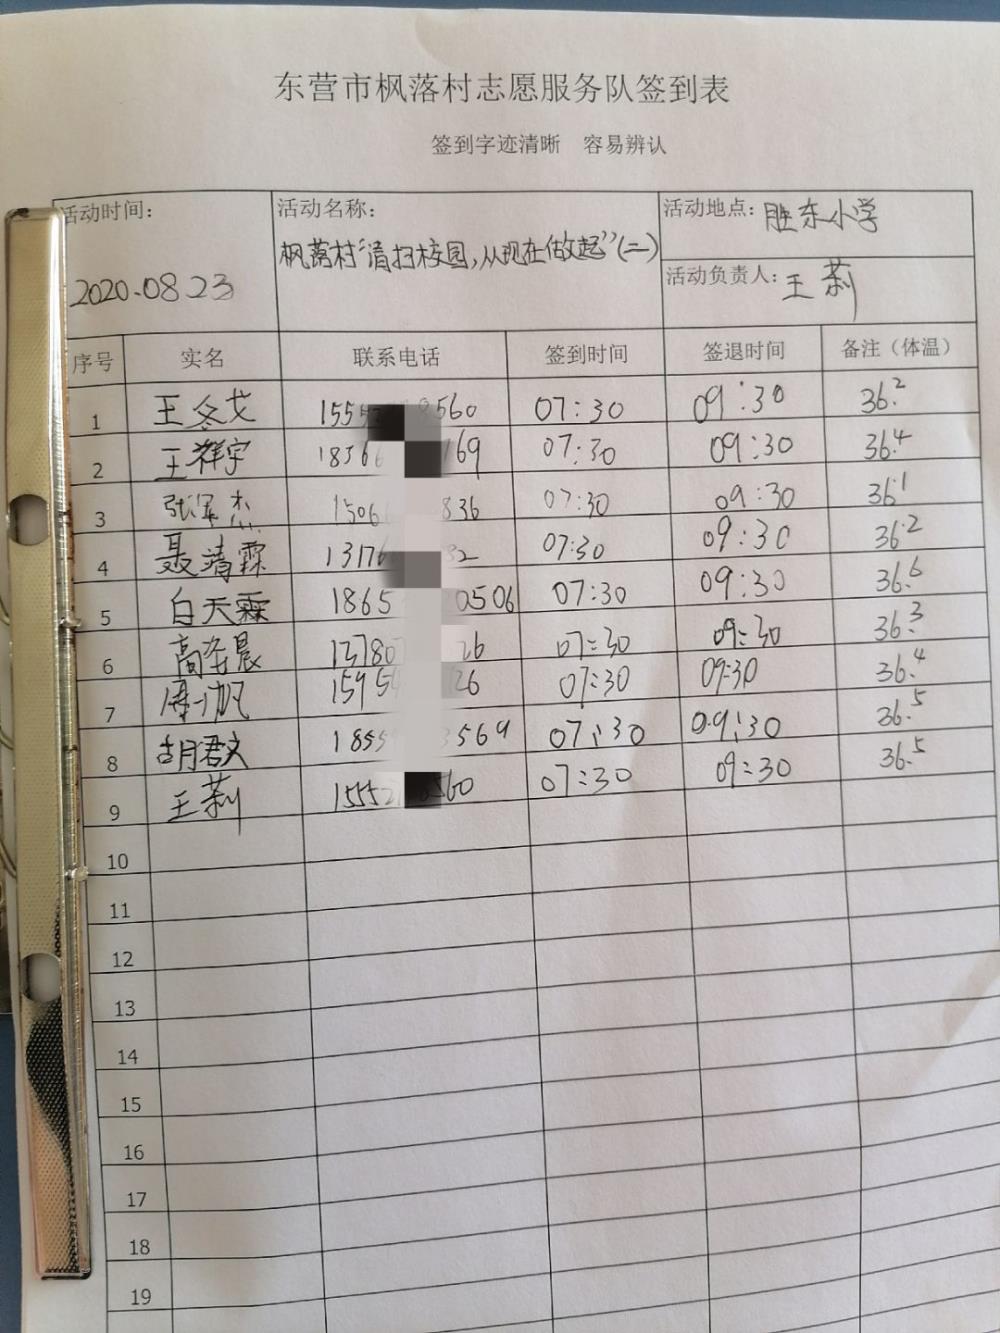 东营市枫落村志愿服务队签到表
签到字迹清晰 容易辨认
活动时间: 2020.08.23
活动名称: 枫落村“清扫校园,从现在做起”(二)
活动地点: 胜东小学
活动负责人: 王莉
序号 实名 联系电话 签到时间 签退时间 备注（体温）
1 王冬艾 155 8560 07:30 09:30 36.2
2 王祥宇 1836 169 07:30 09:30 36.4
3 张军杰 1506 836 07:30 09:30 36.1
4 聂清霖 1317 82 07:30 09:30 36.2
5 白天霖 1865 0506 07:30 09:30 36.6
6 高 晨 13780 26 07:30 09:30 36.3
7 周 帆 1595 26 07:30 09:30 36.4
8 胡君文 1855 3569 07:30 09:30 36.5
9 王莉 1555 560 07:30 09:30 36.5
10
11
12
13
14
15
16
17
18
19